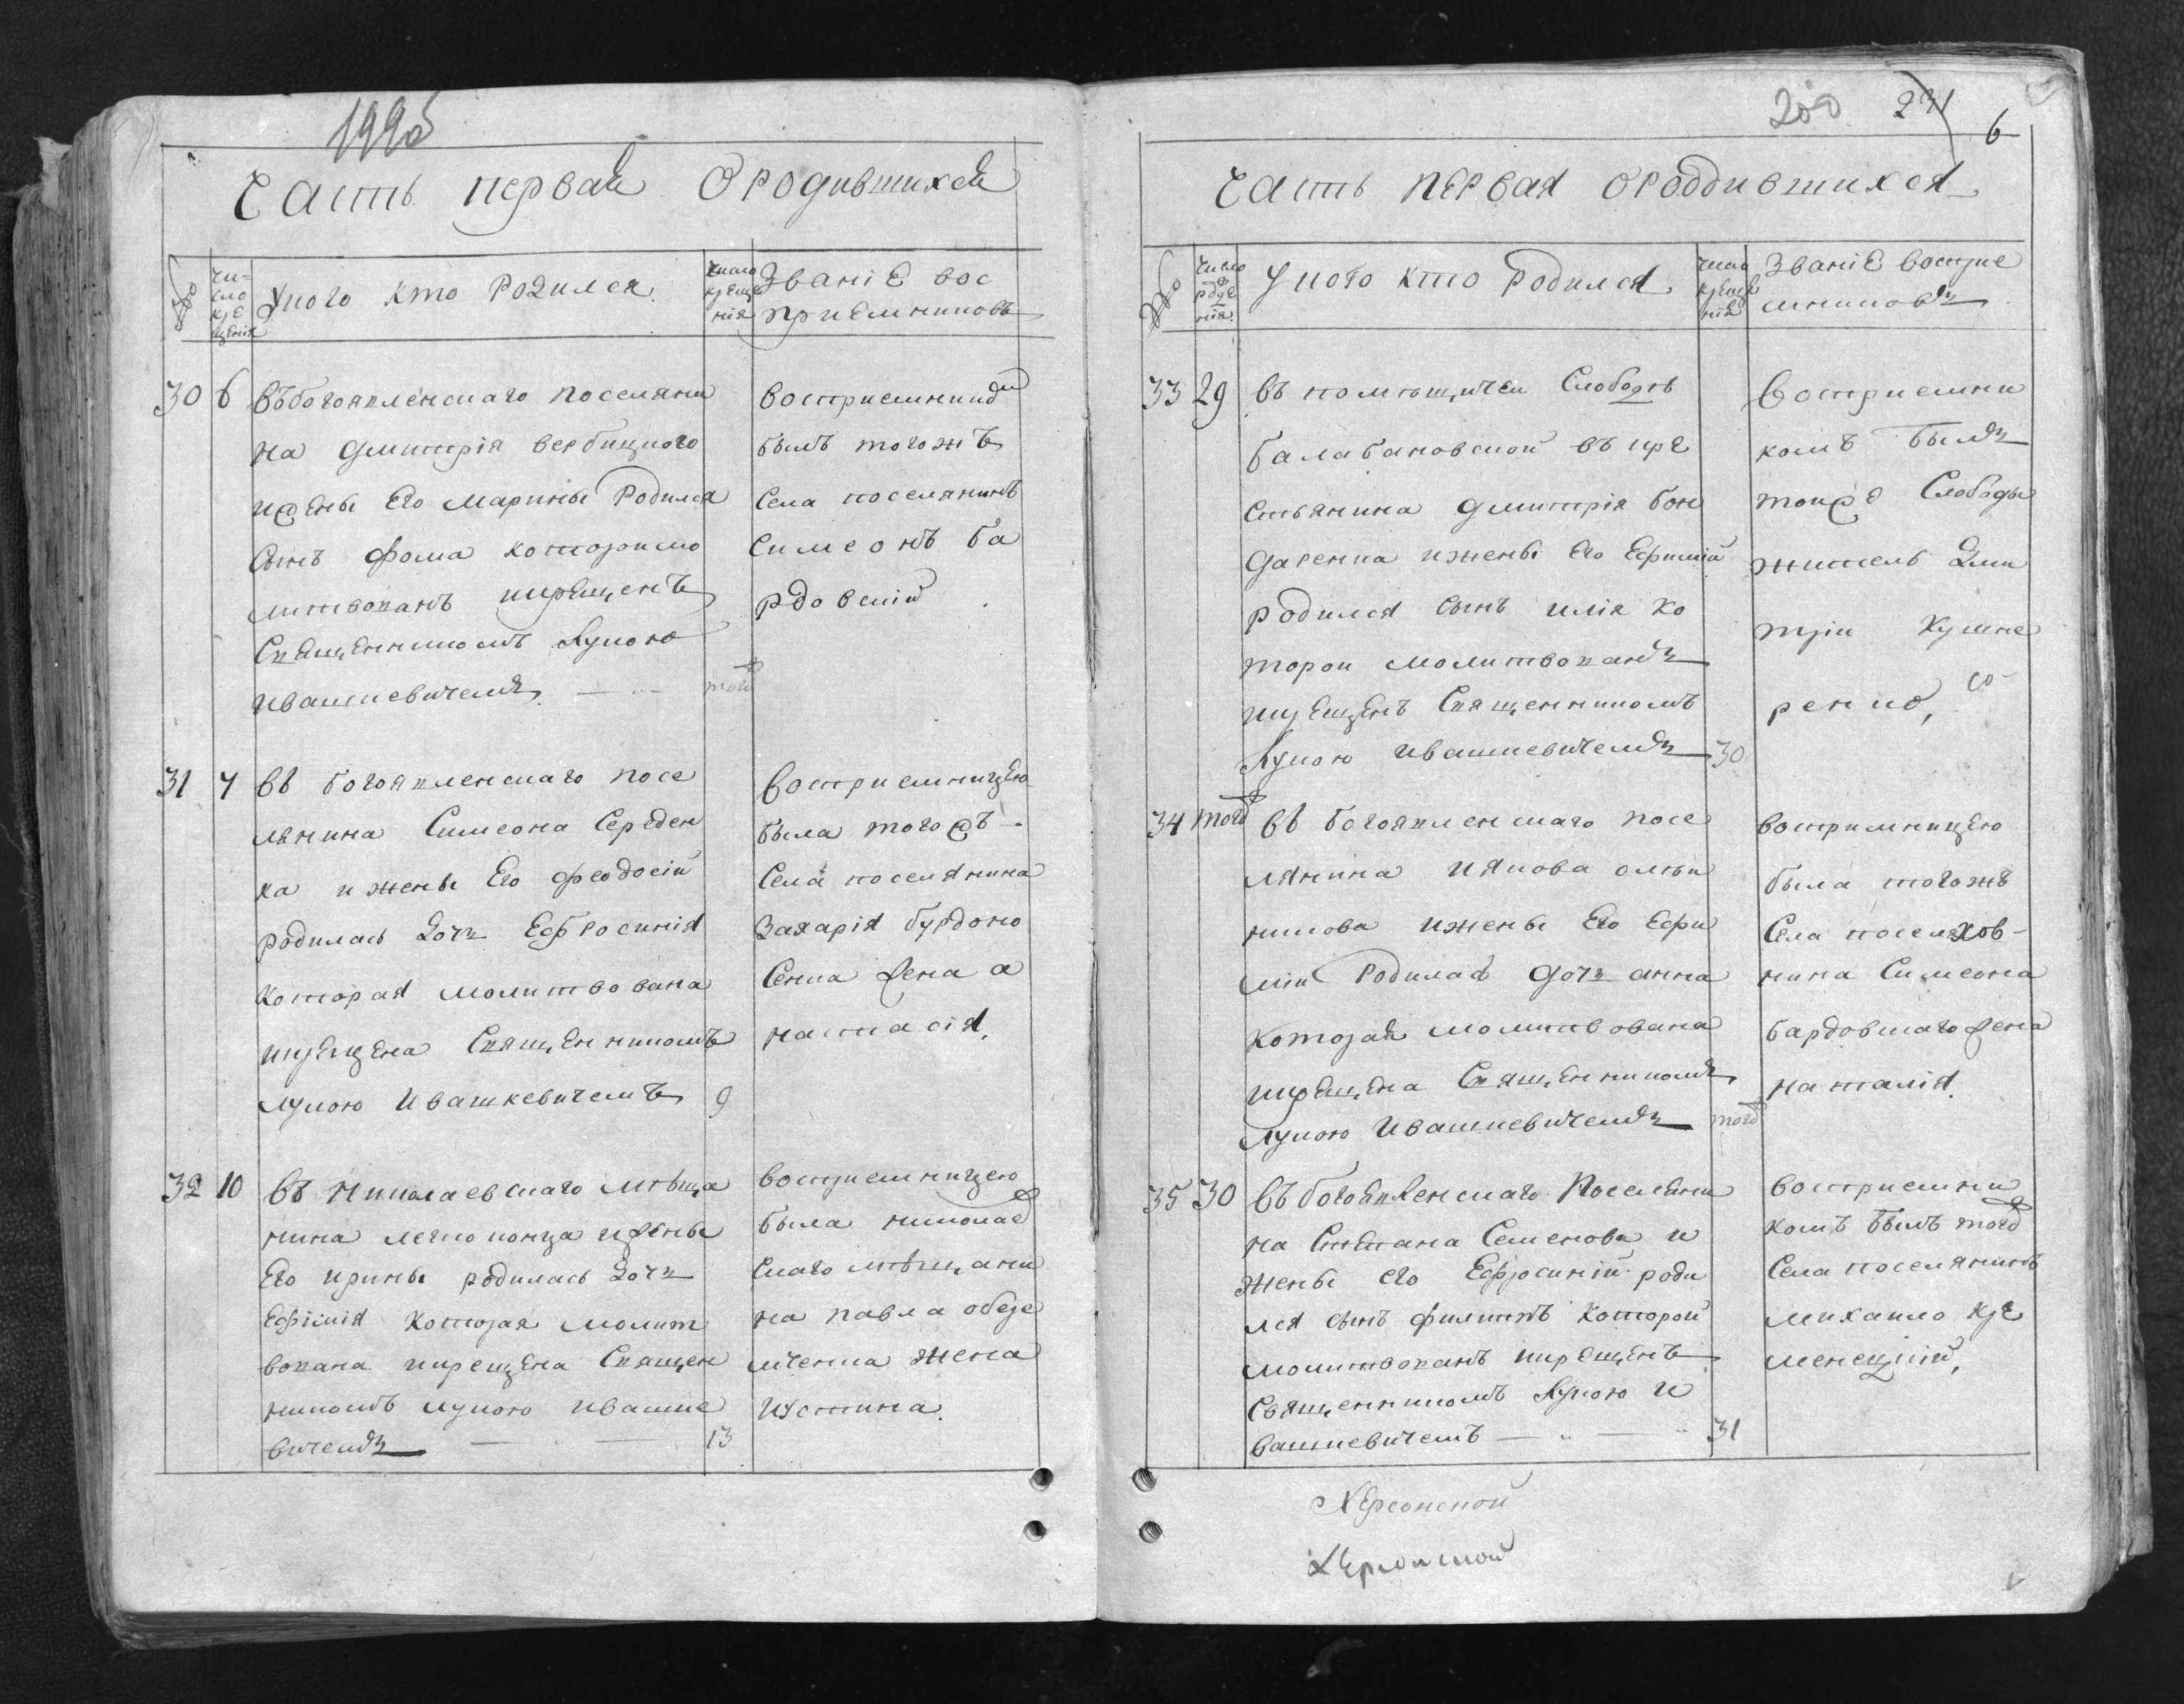 199об
Часть первая О родившихся
№
чи=
сло
кре
щенія
Укого кто родился
число
креще
нія
Званіе вос
приемниковъ
30 6 въбогоявленскаго поселяни
на дмитрія вербицкого
ижены Его марины Родился
сынъ фома которимо
литвованъ икрещенъ
Священникомъ Лукою
ивашкевичемъ — " — того
восприемникомъ
былъ тогожъ
Села поселянинъ
Симеонъ ба
рдовскій
31 7 въ богоявленскаго посе
лянина Симеона Середен
ка и жены Его феодосіи
родилась дочь Ефросинія
которая молитвована
икрещена Священникомъ
лукою Ивашкевичемъ 9
восприемницею
была тогожъ -
Села поселянина
Захарія бурдоно
Сенка жена а
настасія.
32 10 въ николаевскаго мѣща
нина легкоконца ижены
Его ирины родилась дочь
Ефімія которая молит
вована икрещена Священ
никомъ лукою ивашке
вичемъ — — 13
восприемницею
была николае
Скаго мѣщани
на павла обере
мченка жена
иустина.
200 231
6
Часть первая ороддившихся
№
число
рожде
нія
Укого кто родился
число
креще
нія
Званіе восприе
мниковъ
33 29 въ помѣщичеи Слободѣ
балабановской въ кре
стьянина дмитрія бон
даренка ижены Его Ефиміи
родился сынъ илія ко
торои молитвованъ
икрещенъ Священникомъ
Лукою ивашкевичемъ 30
восприемни
комъ былъ
тоиже Слободы
житель дми
тріи Кушне
ренко, со-
34 того въ богоявленскаго посе
лянина иякова олѣи
никова ижены Его Ефи
міи Родилась дочь анна
которая молитвована
икрещена Священникомъ
лукою Ивашкевичемъ того
восприемницею
была тогожъ
Села поселяхов-
нина Симеона
бардовшаго жена
наталія.
35 30 въ богоявленскаго поселяни
на Стѣпана Семенова и
жены его Ефросиніи роди
лся сынъ филиппъ которои
молитвованъ икрещенъ
Священникомъ Лукою и
вашкевичемъ — " — " 31
восприемни
комъ былъ того
Села поселянинъ
михаило кре
менецкій,
Херсонской
Херсонской